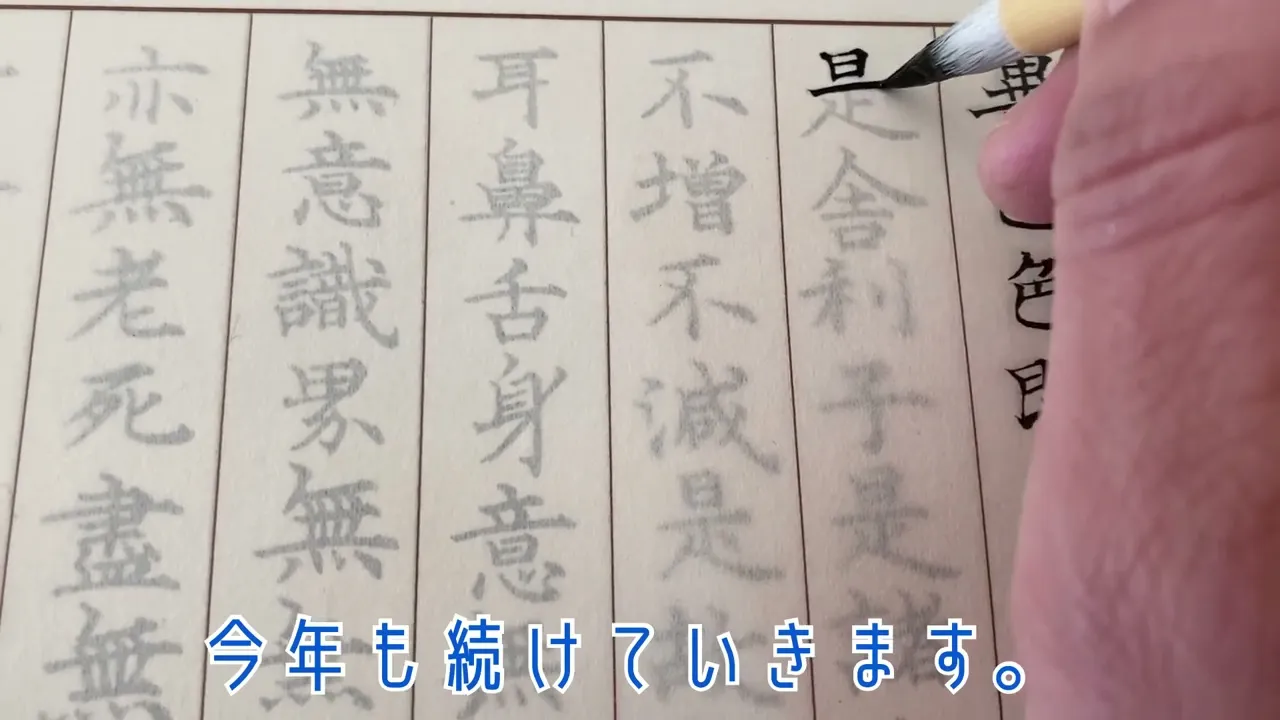 異
色
即
是舎利子是諸
不増不減是故
耳鼻舌身意無
無意識界無無
亦無老死盡無
今年も続けていきます。